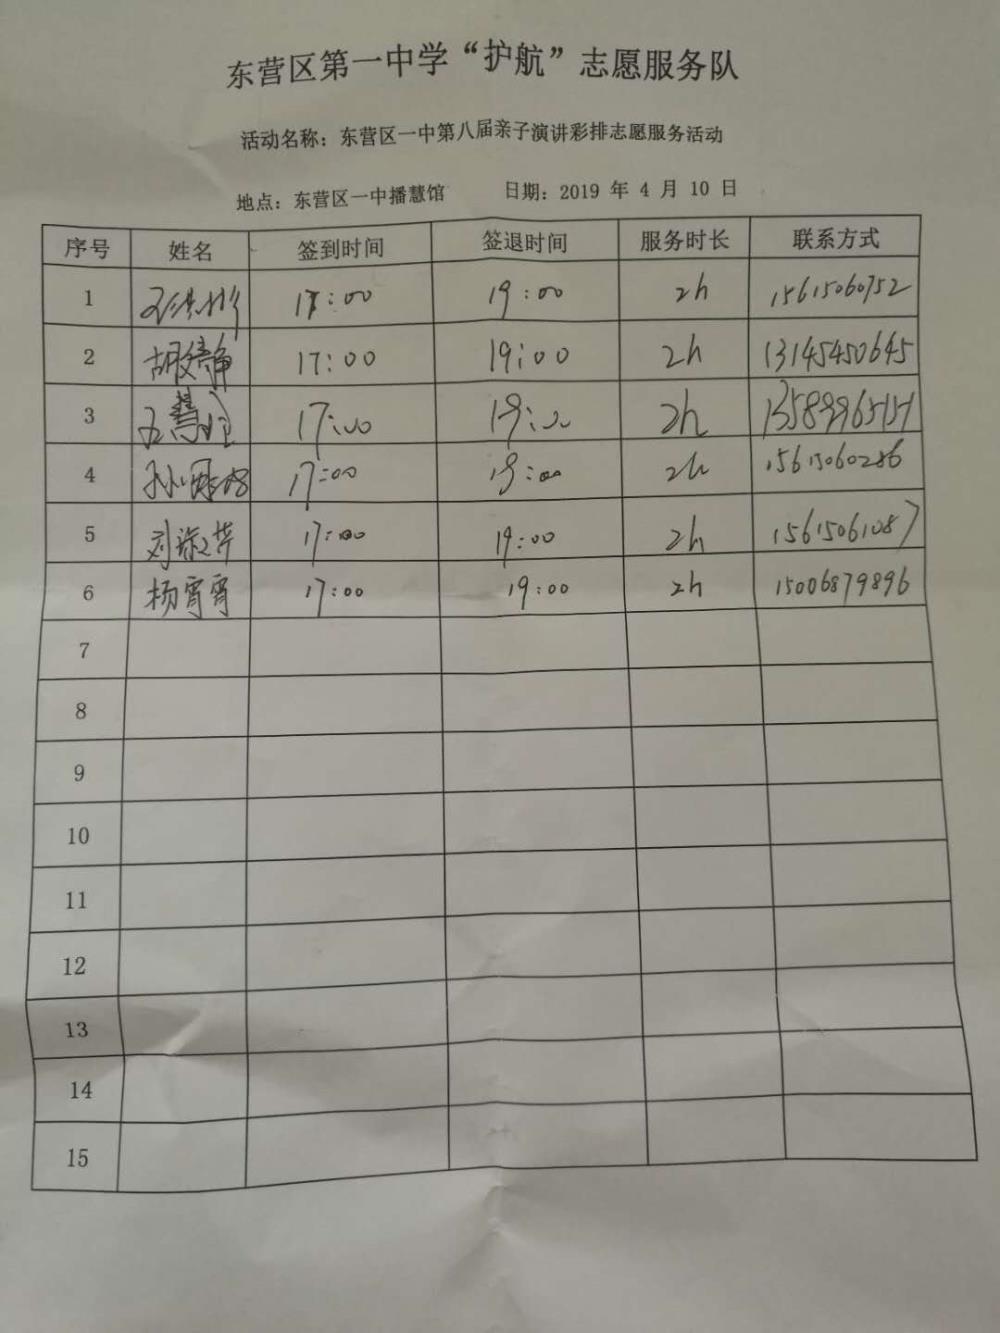 东营区第一中学“护航”志愿服务队
活动名称：东营区一中第八届亲子演讲彩排志愿服务活动
地点：东营区一中播慧馆 日期：2019 年 4 月 10 日
序号 姓名 签到时间 签退时间 服务时长 联系方式
1 17:00 19:00 2h 15615060752
2 胡婷静 17:00 19:00 2h 13145450645
3 17:00 19:00 2h
4 17:00 19:00 2h 15615060286
5 刘淑芹 17:00 19:00 2h 15615061087
6 杨霄霄 17:00 19:00 2h 15006879896
7
8
9
10
11
12
13
14
15